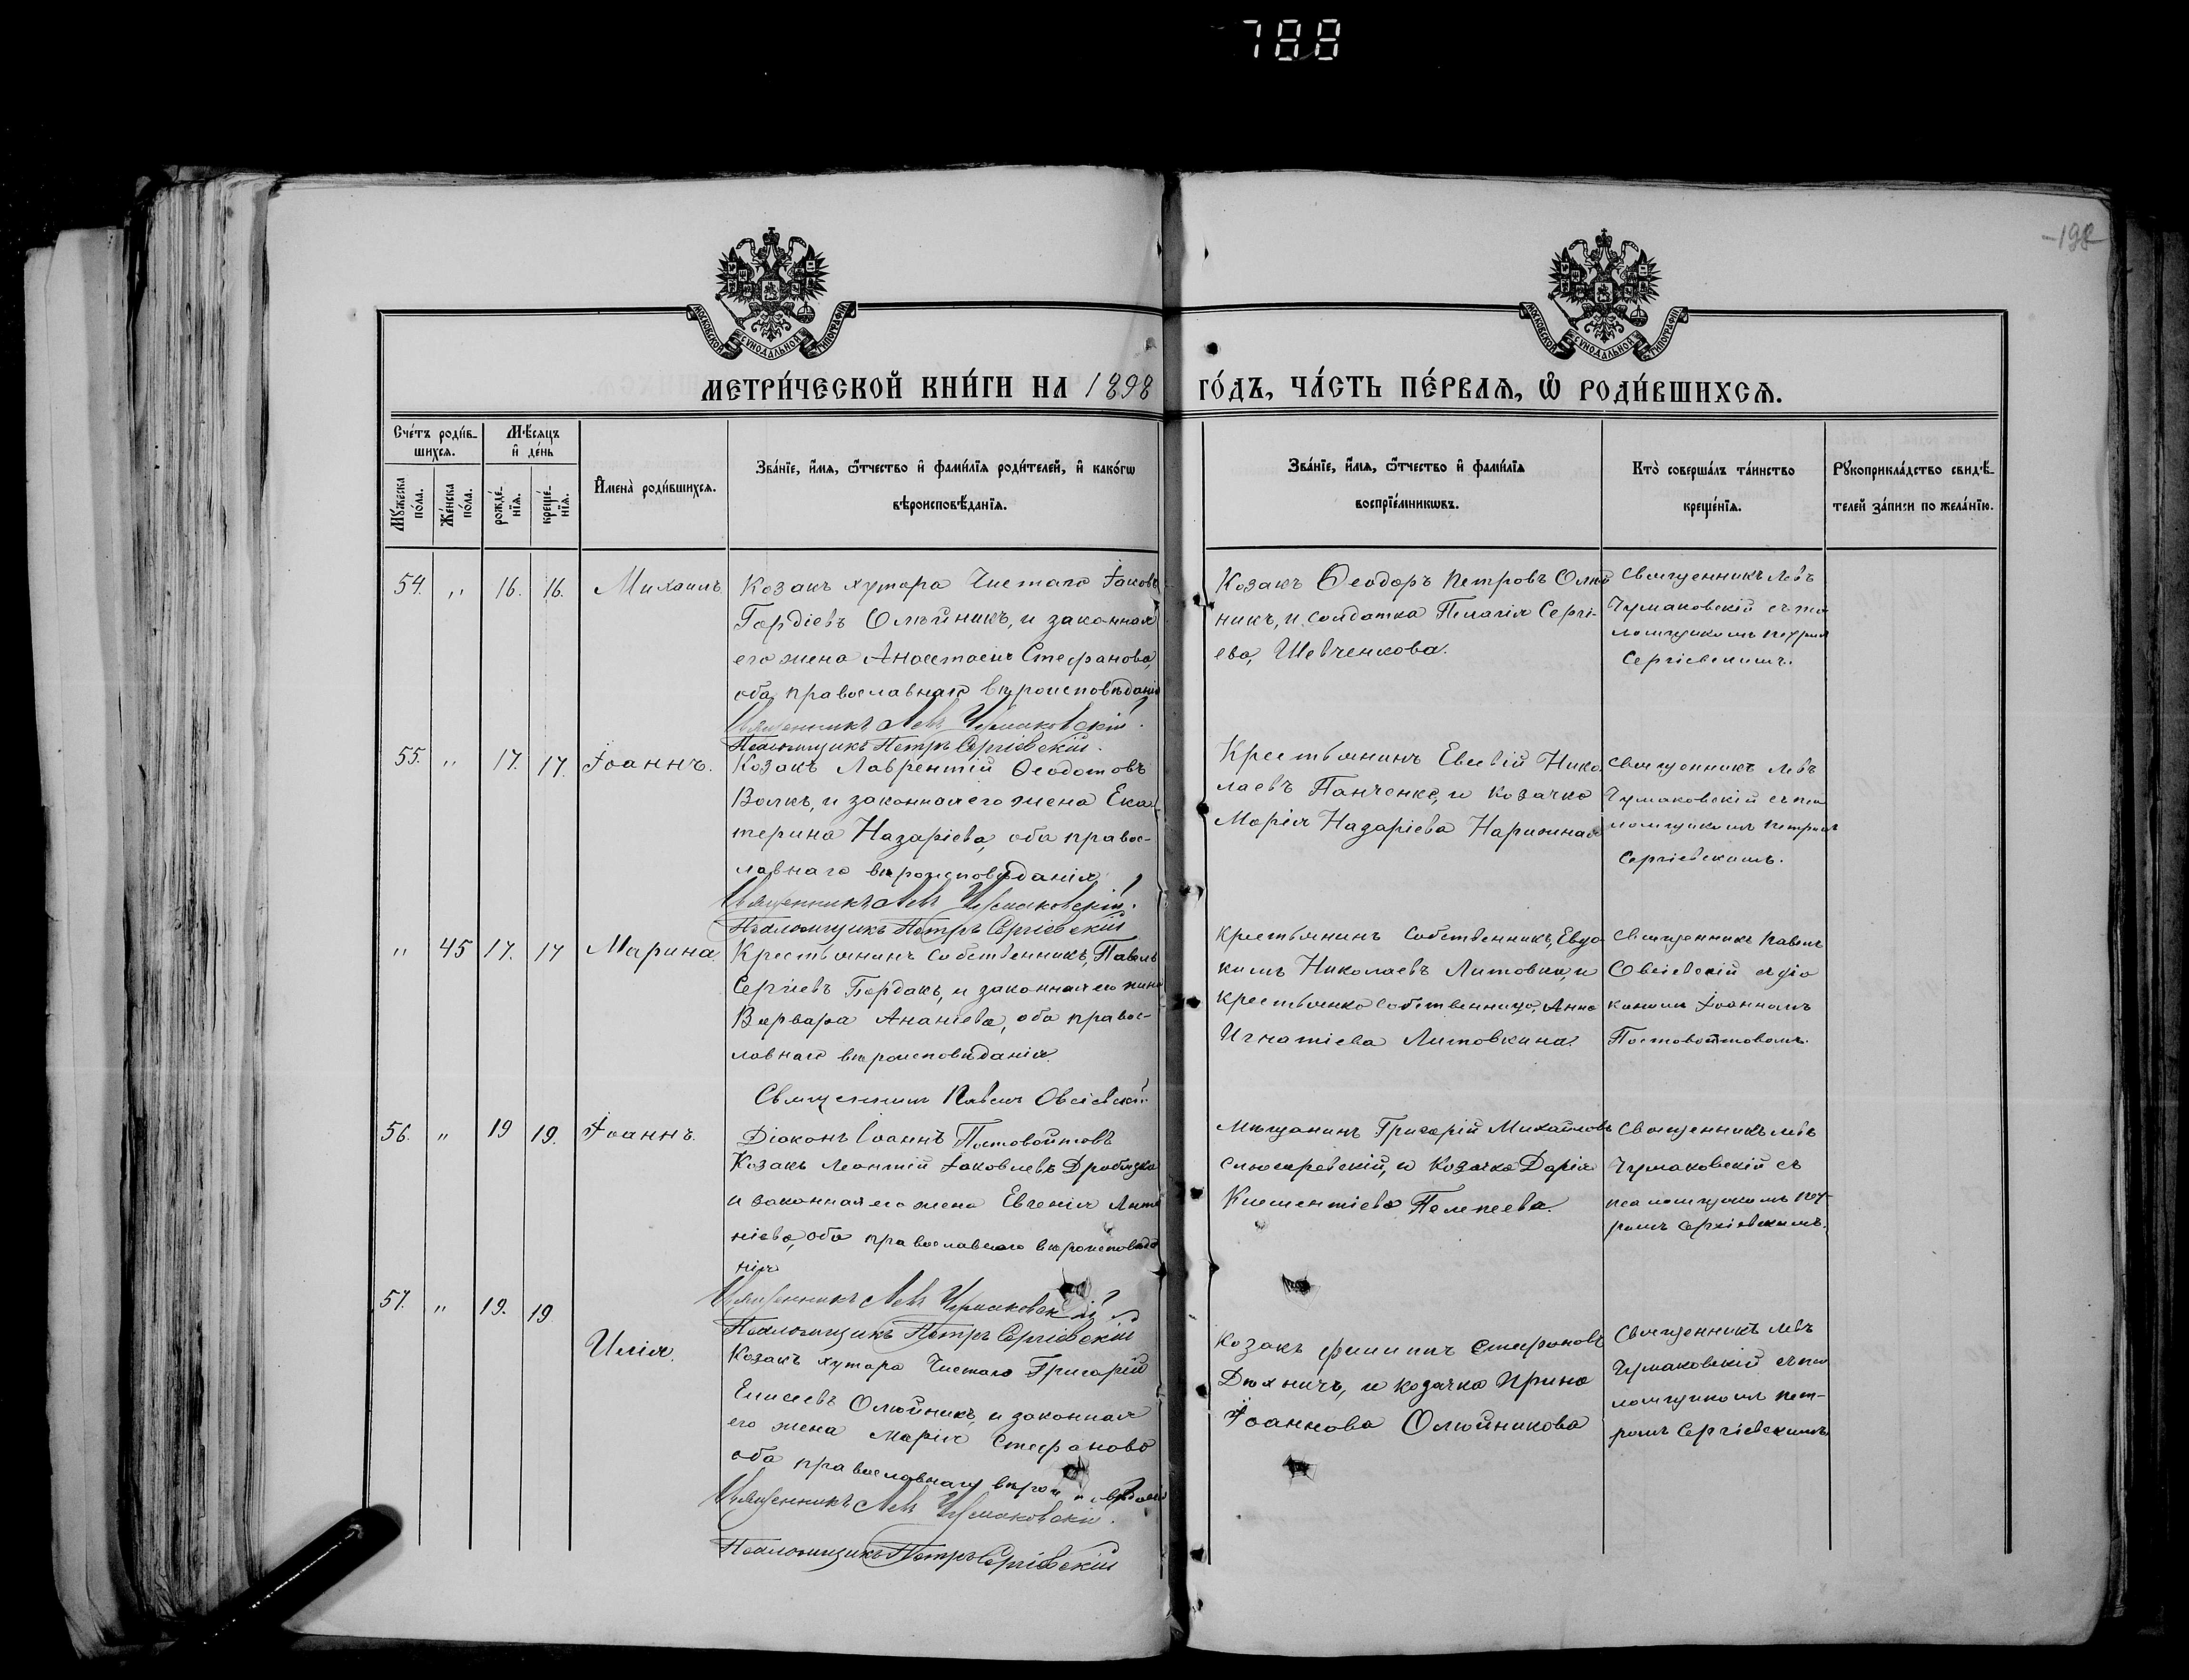 788
198
МОСКОВСКОЙ СѴНОДАЛЬНОЙ ТИПОГРАФІИ
МОСКОВСКОЙ СѴНОДАЛЬНОЙ ТИПОГРАФІИ
МЕТРИ́ЧЕСКОЙ КНИ́ГИ НА 1898 ГО́ДЪ, ЧА́СТЬ ПЕ́РВАѦ, Ѽ РОДИ́ВШИХСѦ.
Сче́тъ роди́в-
шихсѧ.
Мꙋ́жеска по́ла.
Же́нска по́ла.
Мѣ́сѧцъ
и҆ де́нь
рожде́-
нїѧ.
креще́-
нїѧ.
И҆мена̀ роди́вшихсѧ.
Зва́нїе, и҆́мѧ, ѻ҆́тчество и҆ фами́лїѧ роди́телей, и҆ како́гѡ
вѣроисповѣ́данїѧ.
Зва́нїе, и҆́мѧ, ѻ҆́тчество и҆ фами́лїѧ
воспрїе́мникѡвъ.
Кто̀ соверша́лъ та́инство
креще́нїѧ.
Рꙋкоприкла́дство свидѣ́-
телей за́писи по жела́нїю.
54. " 16. 16. Михаилъ.
Козакъ хутора Чистаго Іаковъ
Гордіевъ Олѣйникъ, и законная
его жена Анастасія Стефанова,
оба православнаго вѣроисповѣданія
Священникъ Левъ Чумаковскій.
Псаломщикъ Петръ Сергіевскій.
Козакъ Ѳеодоръ Петровъ Олѣй
никъ, и солдатка Пелагія Сергі-
ева, Шевченкова.
Священникъ Левъ
Чумаковскій съ пса
ломщикомъ Петромъ
Сергіевскимъ.
55. " 17. 17. Іоаннъ.
Козакъ Лаврентій Ѳеодотовъ
Волкъ, и законная его жена Ека-
терина Назаріева, оба правос-
лавнаго вѣроисповѣданія,
Священникъ Левъ Чумаковскій.
Псаломщикъ Петръ Сергіевскій
Крестьянинъ Евсевій Нико
лаевъ Панченко, и козачка
Марія Назаріева Нарижная
Священникъ Левъ
Чумаковскій съ пса
ломщикомъ Петромъ
Сергіевскимъ.
" 45 17. 17 Марина.
Крестьянинъ собственникъ, Павелъ
Сергіевъ Бордакъ, и законная его жена
Варвара Ананіева, оба правос-
лавнаго вѣроисповѣданія.
Священникъ Павелъ Овсіевскій
Діаконъ Іоаннъ Постовойтовъ
Крестьянинъ собственникъ, Евдо
кимъ Николаевъ Литовка, и
крестьянка собственница, Анна
Игнатіева Литовкина.
Священникъ Павелъ
Овсіевскій съ діа
кономъ Іоанномъ
Постовойтовымъ.
56. " 19 19. Іоаннъ.
Козакъ Леонтій Іаковлевъ Дробязка
и законная его жена Евгенія Анто
ніева, оба православнаго вѣроисповѣда
нія
Священникъ Левъ Чумаковскій
Псаломщикъ Петръ Сергіевскій
Мѣщанинъ Григорій Михайловъ
Слюсаревскій, и козачка Дарія
Климентіева Пелпеева.
Священникъ Левъ
Чумаковскій съ
псаломщикомъ Пет-
ромъ Сергіевскимъ.
57. " 19. 19 Илія.
Козакъ хутора Чистаго Григорій
Елисеевъ Олюйникъ, и законная
его жена Марія Стефанова
оба православнаго
Священникъ Левъ Чумаковскій.
Псаломщикъ Петръ Сергіевскій
Козакъ Филиппъ Стефановъ
Дюхничъ, и козачка Ирина
Іоаннова Олюйникова
Священникъ Левъ
Чумаковскій съ пса
ломщикомъ Пет-
ромъ Сергіевскимъ